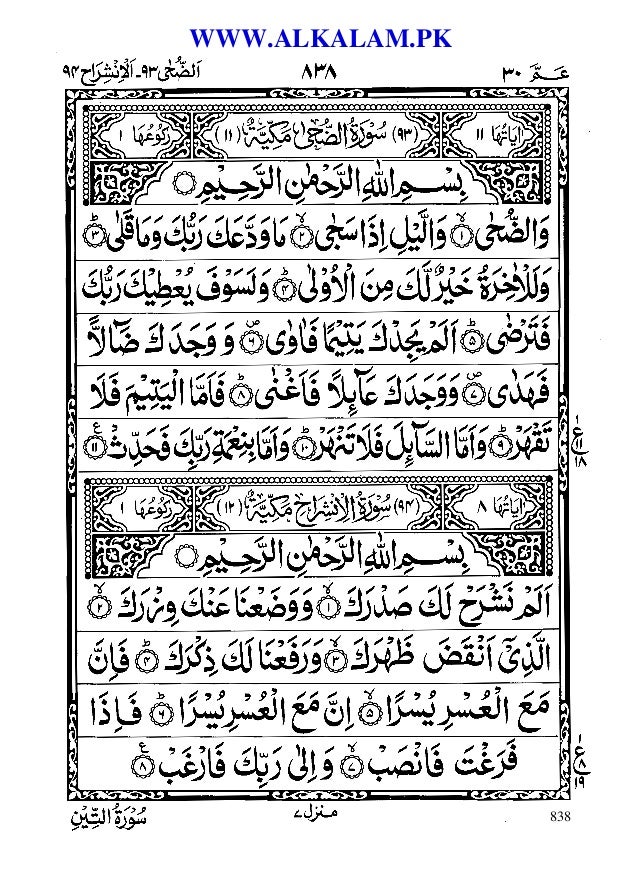 WWW.ALKALAM.PK
عـمّ ٣٠ ٨٣٨ اَلضُّحٰى ٩٣ - اَلْاِنْشِرَاح ٩٤
اٰيَاتُهَا ١١ (٩٣) سُوْرَةُ الضُّحٰى مَكِّيَّةٌ (١١) رُكُوْعُهَا ١
بِسْمِ اللهِ الرَّحْمٰنِ الرَّحِيْمِ
وَالضُّحٰى ۙ﴿١﴾ وَالَّيْلِ اِذَا سَجٰى ۙ﴿٢﴾ مَا وَدَّعَكَ رَبُّكَ وَمَا قَلٰى ؕ﴿٣﴾
وَلَلْاٰخِرَةُ خَيْرٌ لَّكَ مِنَ الْاُوْلٰى ؕ﴿٤﴾ وَلَسَوْفَ يُعْطِيْكَ رَبُّكَ
فَتَرْضٰى ؕ﴿٥﴾ اَلَمْ يَجِدْكَ يَتِيْمًا فَاٰوٰى ۪﴿٦﴾ وَ وَجَدَكَ ضَآلًّا
فَهَدٰى ۪﴿٧﴾ وَوَجَدَكَ عَآئِلًا فَاَغْنٰى ؕ﴿٨﴾ فَاَمَّا الْيَتِيْمَ فَلَا
تَقْهَرْ ؕ﴿٩﴾ وَاَمَّا السَّآئِلَ فَلَا تَنْهَرْ ؕ﴿١٠﴾ وَاَمَّا بِنِعْمَةِ رَبِّكَ فَحَدِّثْ ﴿١١﴾ع
١
ع ١١
١٨
اٰيَاتُهَا ٨ (٩٤) سُوْرَةُ الْاِنْشِرَاحِ مَكِّيَّةٌ (١٢) رُكُوْعُهَا ١
بِسْمِ اللهِ الرَّحْمٰنِ الرَّحِيْمِ
اَلَمْ نَشْرَحْ لَكَ صَدْرَكَ ۙ﴿١﴾ وَوَضَعْنَا عَنْكَ وِزْرَكَ ۙ﴿٢﴾
الَّذِيْٓ اَنْقَضَ ظَهْرَكَ ۙ﴿٣﴾ وَرَفَعْنَا لَكَ ذِكْرَكَ ؕ﴿٤﴾ فَاِنَّ
مَعَ الْعُسْرِ يُسْرًا ۙ﴿٥﴾ اِنَّ مَعَ الْعُسْرِ يُسْرًا ؕ﴿٦﴾ فَاِذَا
فَرَغْتَ فَانْصَبْ ۙ﴿٧﴾ وَاِلٰى رَبِّكَ فَارْغَبْ ﴿٨﴾ع
١
ع ٨
١٩
838 منزل ٧ سُوْرَةُ التِّيْنِ